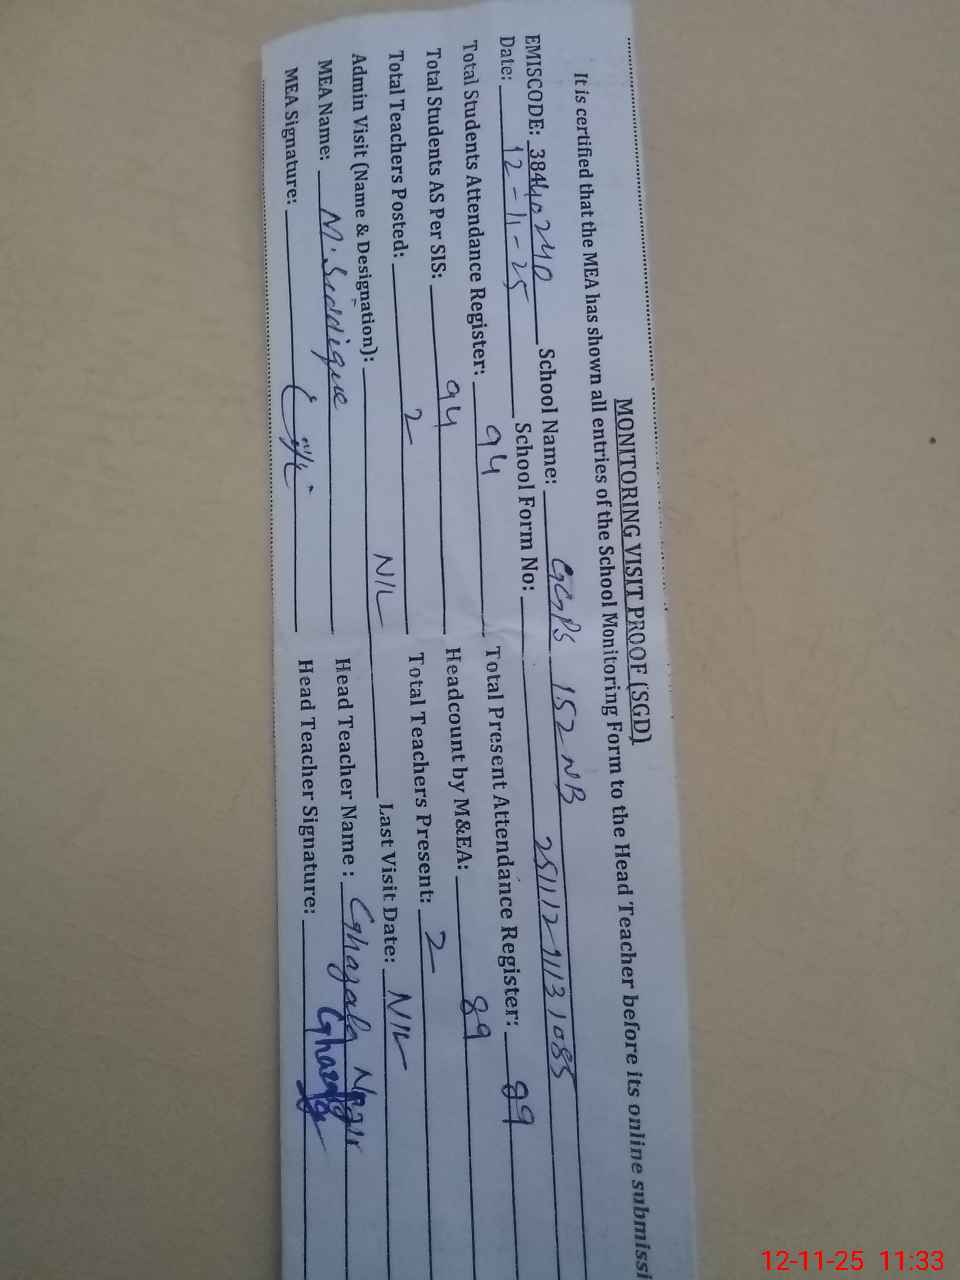 MONITORING VISIT PROOF (SGD)
It is certified that the MEA has shown all entries of the School Monitoring Form to the Head Teacher before its online submissi
EMISCODE: 38440240 School Name: GGPS 152 NB
Date: 12-11-25 School Form No:
Total Students Attendance Register: 94 Total Present Attendance Register: 89
Total Students AS Per SIS: 94 Headcount by M&EA: 89
Total Teachers Posted: 2 Total Teachers Present: 2
Admin Visit (Name & Designation): NIL Last Visit Date: NIL
MEA Name: M. Siddique Head Teacher Name : Ghazala
MEA Signature: Head Teacher Signature: Ghazala
12-11-25 11:33